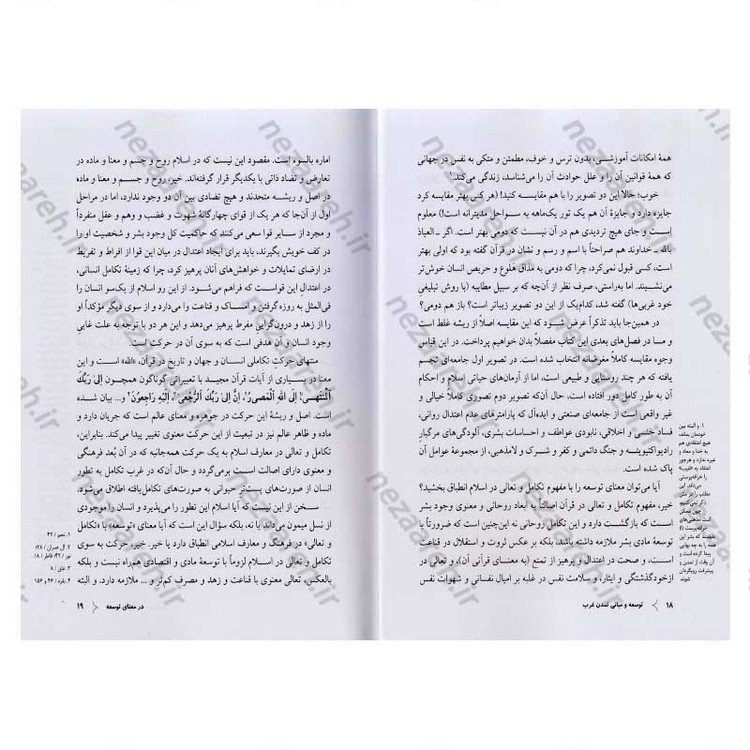 همهٔ امکانات آموزشی، بدون ترس و خوف، مطمئن و متکی به نفس در جهانی
که همهٔ قوانین آن را و علل حوادث آن را می‌شناسد، زندگی می‌کند.
خوب؛ حالا این دو تصویر را با هم مقایسه کنید! (هر کس بهتر مقایسه کرد
جایزه دارد و جایزهٔ آن هم یک تور یک‌ماهه به سواحل مدیترانه است!) معلوم
است و جای هیچ تردیدی هم در آن نیست که دومی بهتر است. اگر ـ العیاذ
بالله ـ خداوند هم صراحتاً با اسم و رسم و نشان در قرآن گفته بود که اولی بهتر
است، کسی قبول نمی‌کرد، چرا که دومی به مذاق هلوع و حریص انسان خوش‌تر
می‌نشیند. اما به‌راستی، صرف نظر از آن‌چه که بر سبیل مطایبه (با روش تبلیغی
خود غربی‌ها) گفته شد، کدام‌یک از این دو تصویر زیباتر است؟ باز هم دومی؟
در همین‌جا باید تذکراً عرض شود که این مقایسه اصلاً از ریشه غلط است
و ما در فصل‌های بعدی این کتاب مفصلاً بدان خواهیم پرداخت. در این قیاس
وجوه مقایسه کاملاً مغرضانه انتخاب شده است. در تصویر اول جامعه‌ای تجسم
یافته که هر چند روستایی و طبیعی است، اما از آرمان‌های حیاتی اسلام و احکام
آن به طور کامل دور افتاده است، حال آن‌که تصویر دوم تصوری کاملاً خیالی و
غیر واقعی است از جامعه‌ای صنعتی و ایده‌آل که پارامترهای عدم اعتدال روانی،
فساد جنسی و اخلاقی، نابودی عواطف و احساسات بشری، آلودگی‌های مرگبار
رادیواکتیویته و جنگ دائمی و کفر و شرک و لامذهبی، از مجموعهٔ عوامل آن
پاک شده است.
آیا می‌توان معنای توسعه را با مفهوم تکامل و تعالی در اسلام انطباق بخشید؟
خیر، مفهوم تکامل و تعالی در قرآن اصالتاً به ابعاد روحانی و معنوی وجود بشر
است که بازگشت دارد و این تکامل روحانی نه این‌چنین است که ضرورتاً با
توسعهٔ مادی بشر ملازمه داشته باشد، بلکه بر عکس ثروت و استقلال در قناعت
است، و صحت در اعتدال و پرهیز از تمتع (به معنای قرآنی آن)، و تعالی در
ازخودگذشتگی و ایثار، و سلامت نفس در غلبه بر امیال نفسانی و شهوات نفس
۱. و البته بین
خودمان بماند،
هیچ اعتقادی هم
به خدا و معاد و
غیره ندارد و هرجور
اعتقاد به «غیب»
را خرافه‌پرستی
می‌داند. این
مطلب را در متن
ذکر نمی‌کنیم
چون ممکن
است مذهبی‌های
خرافه‌پرست (!)
بفهمند که بشر این
همه را به چه بهایی
پیدا کرده است و
آن وقت، از تمدن و
پیشرفت رویگردان
شوند.
۱۸ توسعه و مبانی تمدن غرب
اماره بالسوء است. مقصود این نیست که در اسلام روح و جسم و معنا و ماده در
تعارض و تضاد ذاتی با یکدیگر قرار گرفته‌اند. خیر، روح و جسم و معنا و ماده
در اصل و ریشه متحدند و هیچ تضادی بین آن دو وجود ندارد، اما در مراحل
اول از آن‌جا که هر یک از قوای چهارگانهٔ شهوت و غضب و وهم و عقل منفرداً
و مجرد از سایر قوا سعی می‌کنند که حاکمیت کل وجود بشر و شخصیت او را
در کف خویش بگیرند، باید برای ایجاد اعتدال در میان این قوا از افراط و تفریط
در ارضای تمایلات و خواهش‌های آنان پرهیز کرد، چرا که زمینهٔ تکامل انسانی،
در اعتدال این قواست که فراهم می‌شود. از این رو اسلام از یک‌سو انسان را
فی‌المثل به روزه گرفتن و امساک و قناعت وا می‌دارد و از سوی دیگر مؤکداً او
را از زهد و درون‌گرایی مفرط پرهیز می‌دهد و این هر دو با توجه به علت غایی
وجود انسان و آن هدفی است که به سوی آن در حرکت است.
منتهای حرکت تکاملی انسان و جهان و تاریخ در قرآن، «الله» است و این
معنا در بسیاری از آیات قرآن مجید با تعبیراتی گوناگون همچون إلی رَبِّکَ
ٱلْمُنتَهی، إلَی اللهِ الْمَصیرُ، إنَّ إلی رَبِّکَ الرُّجْعی، إلَیْهِ راجِعُونَ و... بیان شده
است. اصل و ریشهٔ این حرکت در جوهره و معنای عالم است که جریان دارد و
ماده و ظاهر عالم نیز در تبعیت از این حرکت معنوی تغییر پیدا می‌کند. بنابراین،
تکامل و تعالی در معارف اسلام به یک حرکت همه‌جانبه که در آن بُعد فرهنگی
و معنوی دارای اصالت است برمی‌گردد و حال آن‌که در غرب تکامل به تطور
انسان از صورت‌های پست‌تر حیوانی به صورت‌های تکامل‌یافته اطلاق می‌شود.
سخن از این نیست که آیا اسلام این تطور را می‌پذیرد و انسان را موجودی
از نسل میمون می‌داند یا نه، بلکه سؤال این است که آیا معنای «توسعه» با «تکامل
و تعالی» در فرهنگ و معارف اسلامی انطباق دارد یا خیر. خیر، حرکت به سوی
تکامل و تعالی در اسلام لزوماً با توسعهٔ مادی و اقتصادی همراه نیست و بلکه
بالعکس، تعالی معنوی با قناعت و زهد و مصرف کم‌تر و ... ملازمه دارد. و البته
۱. نجم / ۴۲
۲. آل عمران / ۲۸؛
نور / ۴۲؛ فاطر / ۱۸
۳. علق / ۸
۴. بقره / ۴۶ و ۱۵۶
در معنای توسعه ۱۹
nezaareh.ir